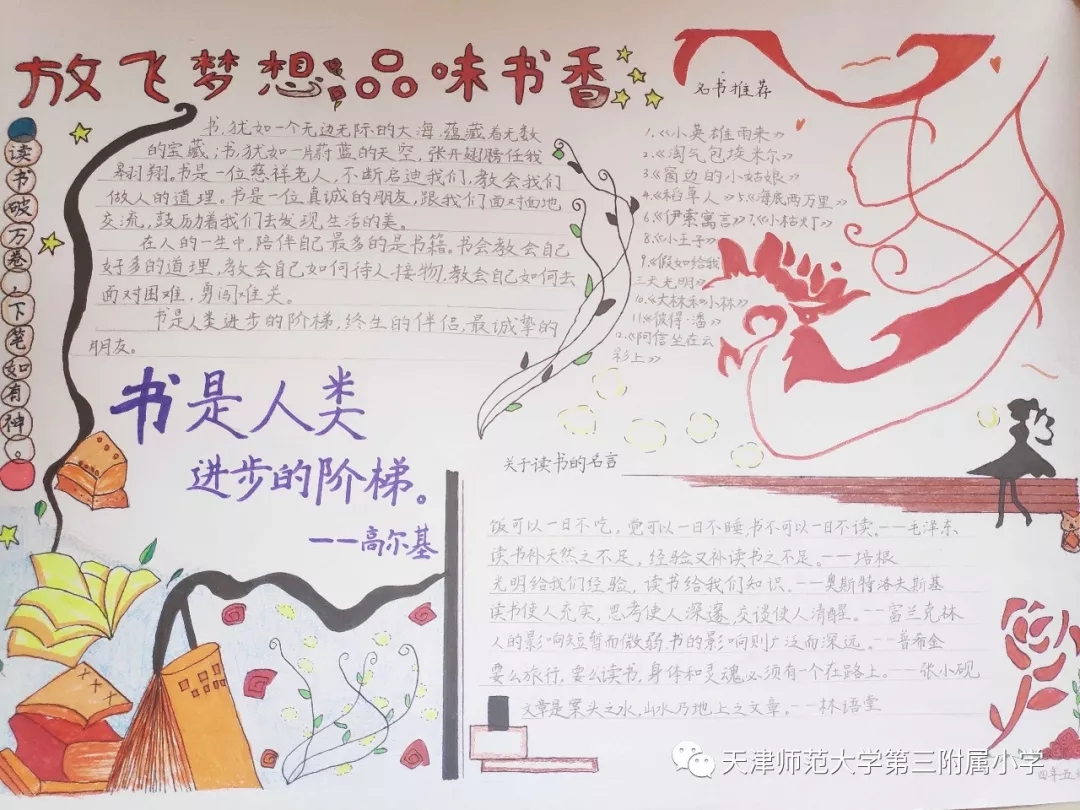 放飞梦想品味书香
读书破万卷，下笔如有神
书，犹如一个无边无际的大海，蕴藏着无数
的宝藏；书，犹如一片蔚蓝的天空，张开翅膀任我
翱翔。书是一位慈祥老人，不断启迪我们，教会我们
做人的道理。书是一位真诚的朋友，跟我们面对面地
交流，鼓励着我们去发现生活的美。
在人的一生中，陪伴自己最多的是书籍。书会教会自己
好多的道理，教会自己如何待人接物，教会自己如何去
面对困难，勇闯难关。
书是人类进步的阶梯，终生的伴侣，最诚挚的
朋友。
名书推荐
1.《小英雄雨来》
2.《淘气包埃米尔》
3.《窗边的小姑娘》
4.《稻草人》5.《海底两万里》
6.《伊索寓言》7.《小桔灯》
8.《小王子》
9.《假如给我
三天光明》
10.《大林和小林》
11.《彼得·潘》
12.《阿信坐在云
彩上》
书是人类
进步的阶梯。
——高尔基
关于读书的名言
饭可以一日不吃，觉可以一日不睡，书不可以一日不读。——毛泽东
读书补天然之不足，经验又补读书之不足。——培根
光明给我们经验，读书给我们知识。——奥斯特洛夫斯基
读书使人充实，思考使人深邃，交谈使人清醒。——富兰克林
人的影响短暂而微弱，书的影响则广泛而深远。——普希金
要么旅行，要么读书，身体和灵魂，必须有一个在路上。——张小砚
文章是案头之水，山水乃地上之文章。——林语堂
天津师范大学第三附属小学